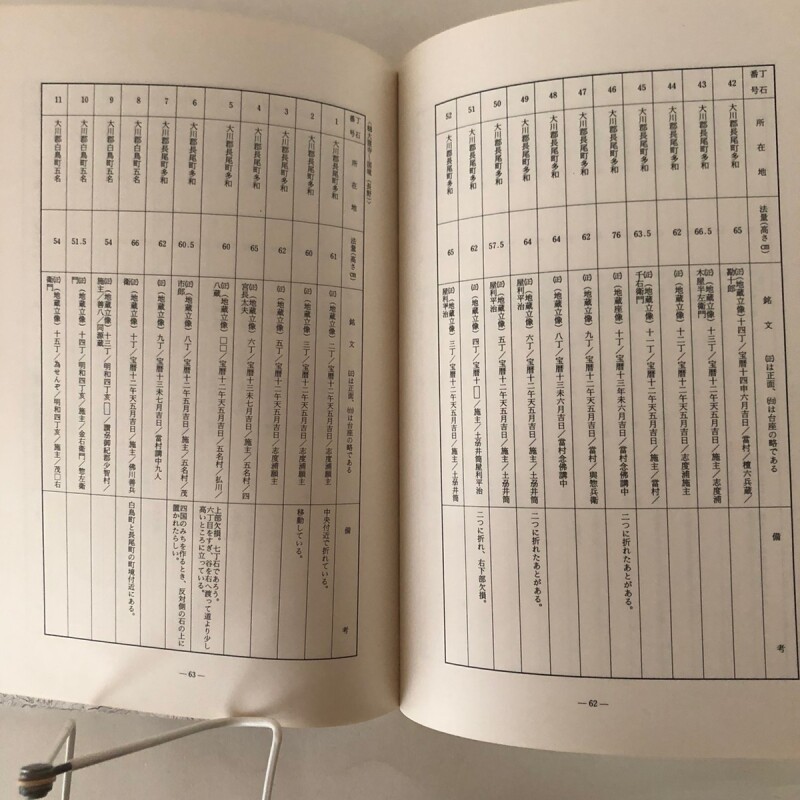 丁石番号
所在地
法量(高さcm)
銘文 (正)は正面、(台)は台座の略である
備考
42
大川郡長尾町多和
65
(正)(地蔵立像)十四丁/宝暦十四申六月吉日/檀六兵蔵/
勘十郎
43
大川郡長尾町多和
66.5
(正)(地蔵立像)十三丁/宝暦十二午天五月吉日/志度浦
木屋半左衛門
44
大川郡長尾町多和
62
(正)(地蔵立像)十二丁/宝暦十二午天五月吉日/志度浦施主
45
大川郡長尾町多和
63.5
(正)(地蔵立像)十一丁/宝暦十二午天五月吉日/施主/當村/
千右衛門
46
大川郡長尾町多和
76
(正)(地蔵座像)十丁/宝暦十三年未六月吉日/當村念佛講中
二つに折れたあとがある。
47
大川郡長尾町多和
62
(正)(地蔵立像)九丁/宝暦十二午天五月吉日/當村/與惣兵衛
48
大川郡長尾町多和
64
(正)(地蔵立像)八丁/宝暦十三未六月吉日/當村念佛講中
49
大川郡長尾町多和
64
(正)(地蔵立像)六丁/宝暦十二午天五月吉日/施主/土居井筒
屋利平治
二つに折れたあとがある。
50
大川郡長尾町多和
57.5
(正)(地蔵立像)五丁/宝暦十二午天五月吉日/施主/土居井筒
屋利平治
51
大川郡長尾町多和
62
(正)(地蔵立像)四丁/宝暦十□/施主/土居井筒屋利平治
二つに折れ、右下部欠損。
52
大川郡長尾町多和
65
(正)(地蔵立像)三丁/宝暦十二午天五月吉日/施主/土居井筒
屋利平治
—62—
丁石番号
所在地
法量(高さcm)
銘文 (正)は正面、(台)は台座の略である
備考
1
大川郡長尾町多和
61
(正)(地蔵立像)二丁/宝暦十二午天五月吉日/志度浦願主
中央付近で折れている。
2
大川郡長尾町多和
60
(正)(地蔵立像)三丁/宝暦十二午天五月吉日/志度浦願主
移動している。
3
大川郡長尾町多和
62
(正)(地蔵立像)四丁/宝暦十二午天五月吉日/志度浦願主
4
大川郡長尾町多和
65
(正)(地蔵立像)六丁/宝暦十三未七月吉日/施主/五名村/四
宮長太夫
5
大川郡長尾町多和
60
(正)(地蔵立像)□□/宝暦十二午天五月吉日/五名村/払川/
八蔵
上部欠損。七丁石であろう。
六丁目をすぎ、谷を右へ渡って道より少し
高いところに立っている。
6
大川郡長尾町多和
60.5
(正)(地蔵立像)八丁/宝暦十二午五月吉日/施主/五名村/茂
市郎
四国のみちを作るとき、反対側の石の上に
置かれたらしい。
7
大川郡長尾町多和
62
(正)(地蔵立像)九丁/宝暦十三未七月吉日/當村講中九人
8
大川郡白鳥町五名
66
(正)(地蔵立像)十丁/宝暦十二午天五月吉日/施主/佛川善兵
衛
白鳥町と長尾町の町境付近にある。
9
大川郡白鳥町五名
54
(正)(地蔵立像)十三丁/明和四丁亥□/讃岐御紀郡少智村/
施主/善八/同源蔵
10
大川郡白鳥町五名
51.5
(正)(地蔵立像)十四丁/明和四丁亥/施主/金右衛門/惣左衛
門
11
大川郡白鳥町五名
54
(正)(地蔵立像)十五丁/為せんぞ/明和四丁亥/施主/茂□右
衛門
—63—